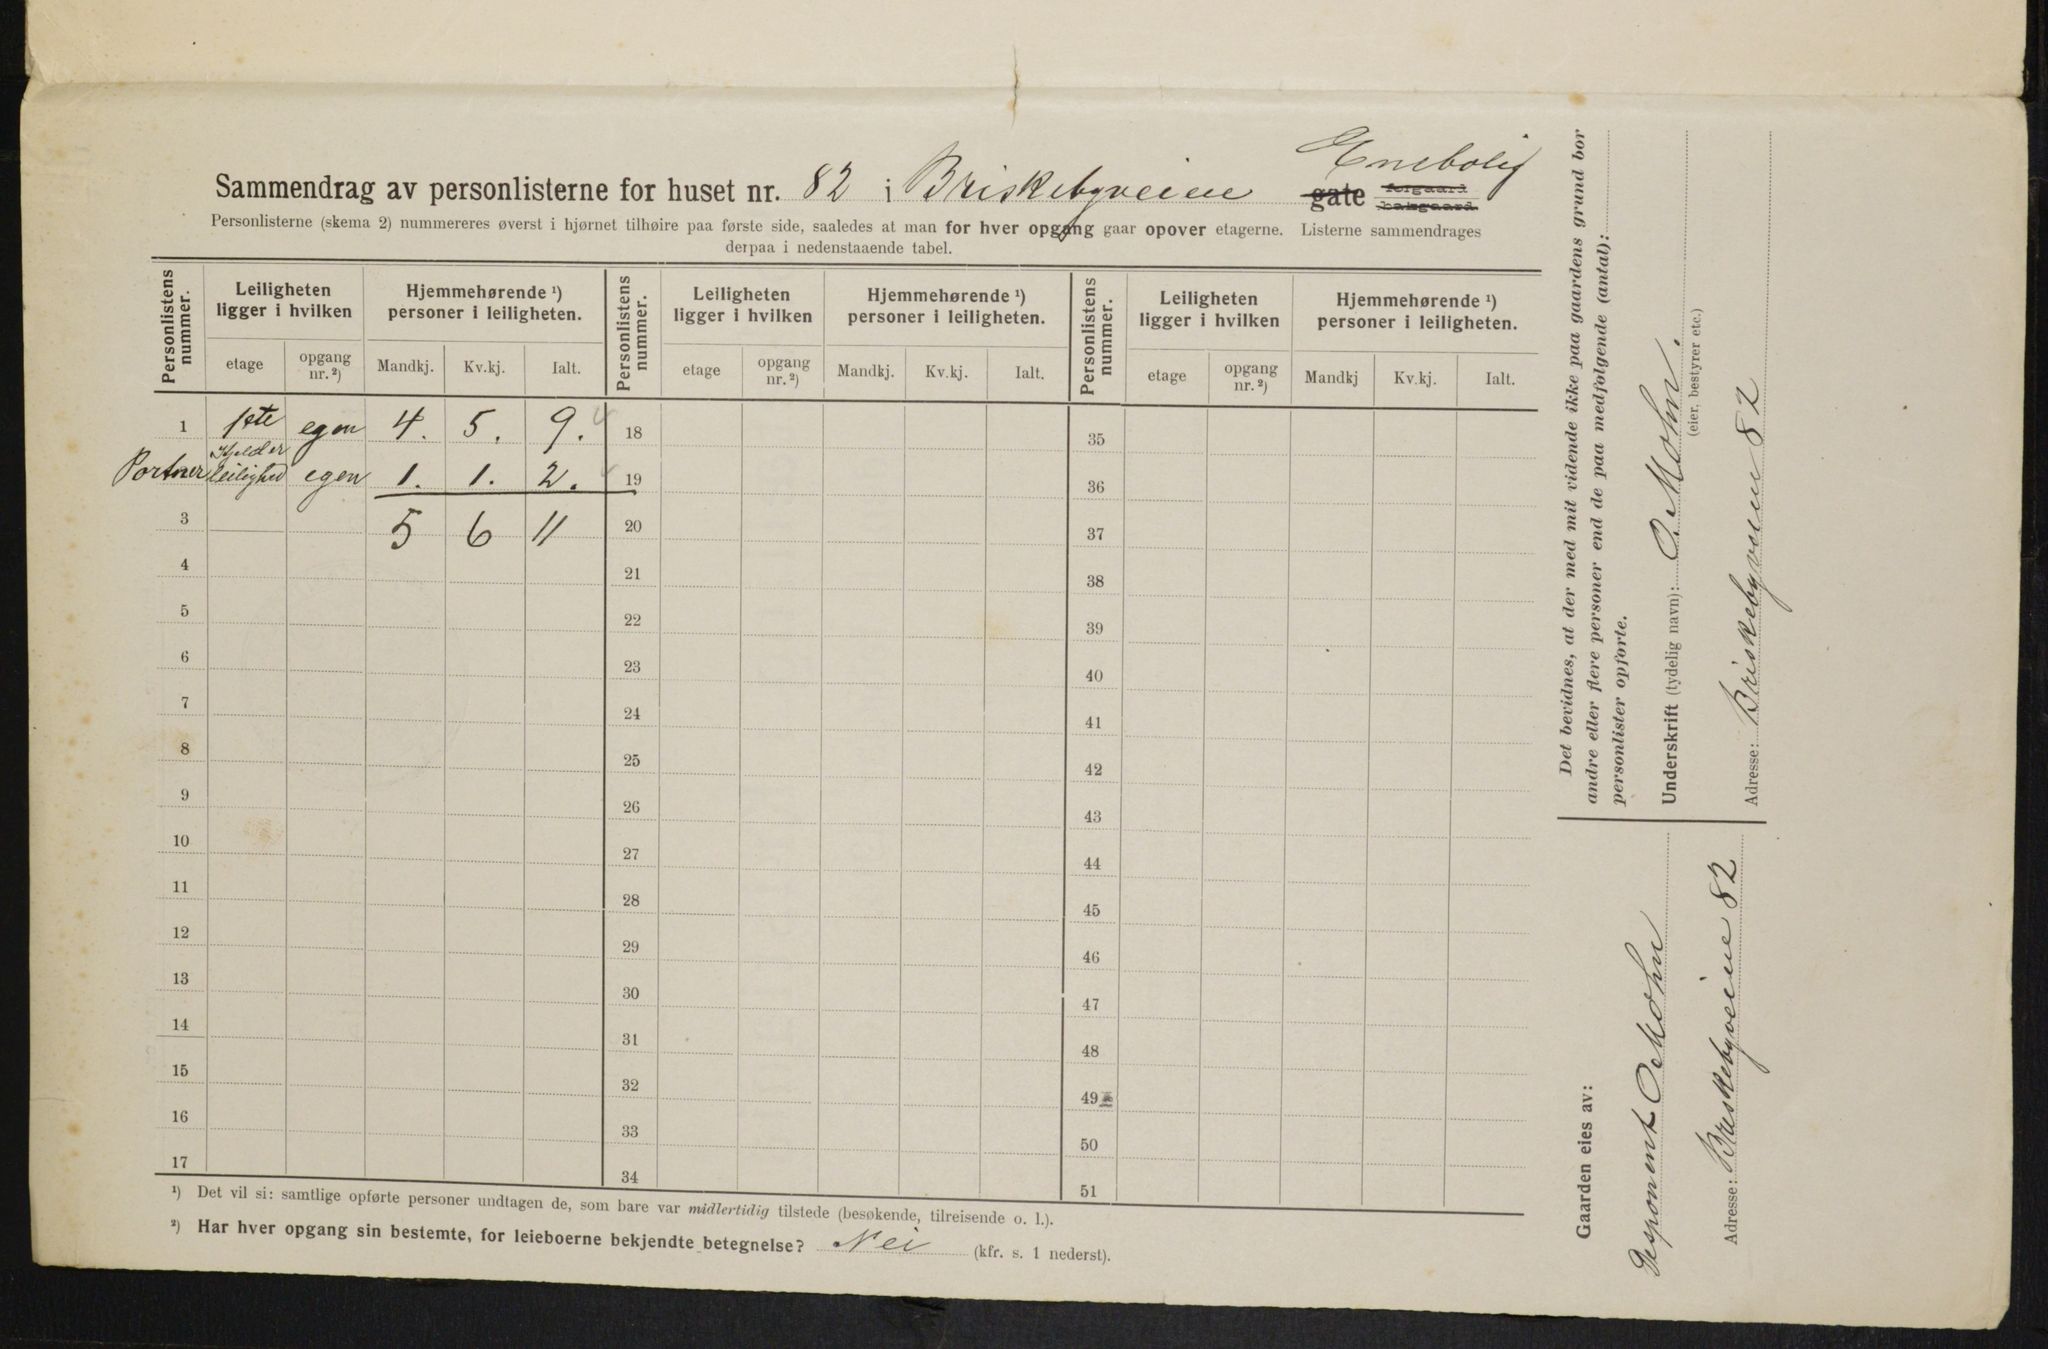 Enebolig
Sammendrag av personlisterne for huset nr. 82 i Briskebyveien gate forgaard bakgaard
Personlisterne (skema 2) nummereres øverst i hjørnet tilhøire paa første side, saaledes at man for hver opgang gaar opover etagerne. Listerne sammendrages
derpaa i nedenstaaende tabel.
Personlistens nummer. Leiligheten ligger i hvilken Hjemmehørende ¹) personer i leiligheten. Personlistens nummer. Leiligheten ligger i hvilken Hjemmehørende ¹) personer i leiligheten. Personlistens nummer. Leiligheten ligger i hvilken Hjemmehørende ¹) personer i leiligheten.
etage opgang nr. ²) Mandkj. Kv.kj. Ialt. etage opgang nr. ²) Mandkj. Kv.kj. Ialt. etage opgang nr. ²) Mandkj Kv.kj. Ialt.
1 1ste egen 4. 5. 9. 18 35
Portner Kjelder leilighed egen 1. 1. 2. 19 36
3 5 6 11 20 37
4 21 38
5 22 39
6 23 40
7 24 41
8 25 42
9 26 43
10 27 44
11 28 45
12 29 46
13 30 47
14 31 48
15 32 49
16 33 50
17 34 51
¹) Det vil si: samtlige opførte personer undtagen de, som bare var midlertidig tilstede (besøkende, tilreisende o. l.).
²) Har hver opgang sin bestemte, for leieboerne bekjendte betegnelse? Nei (kfr. s. 1 nederst).
Det bevidnes, at der med mit vidende ikke paa gaardens grund bor
andre eller flere personer end de paa medfølgende (antal):
personlister opførte.
Underskrift (tydelig navn): O. Mohn.
(eier, bestyrer etc.)
Adresse: Briskebyveien 82
Gaarden eies av:
Disponent O. Mohn
Adresse: Briskebyveien 82